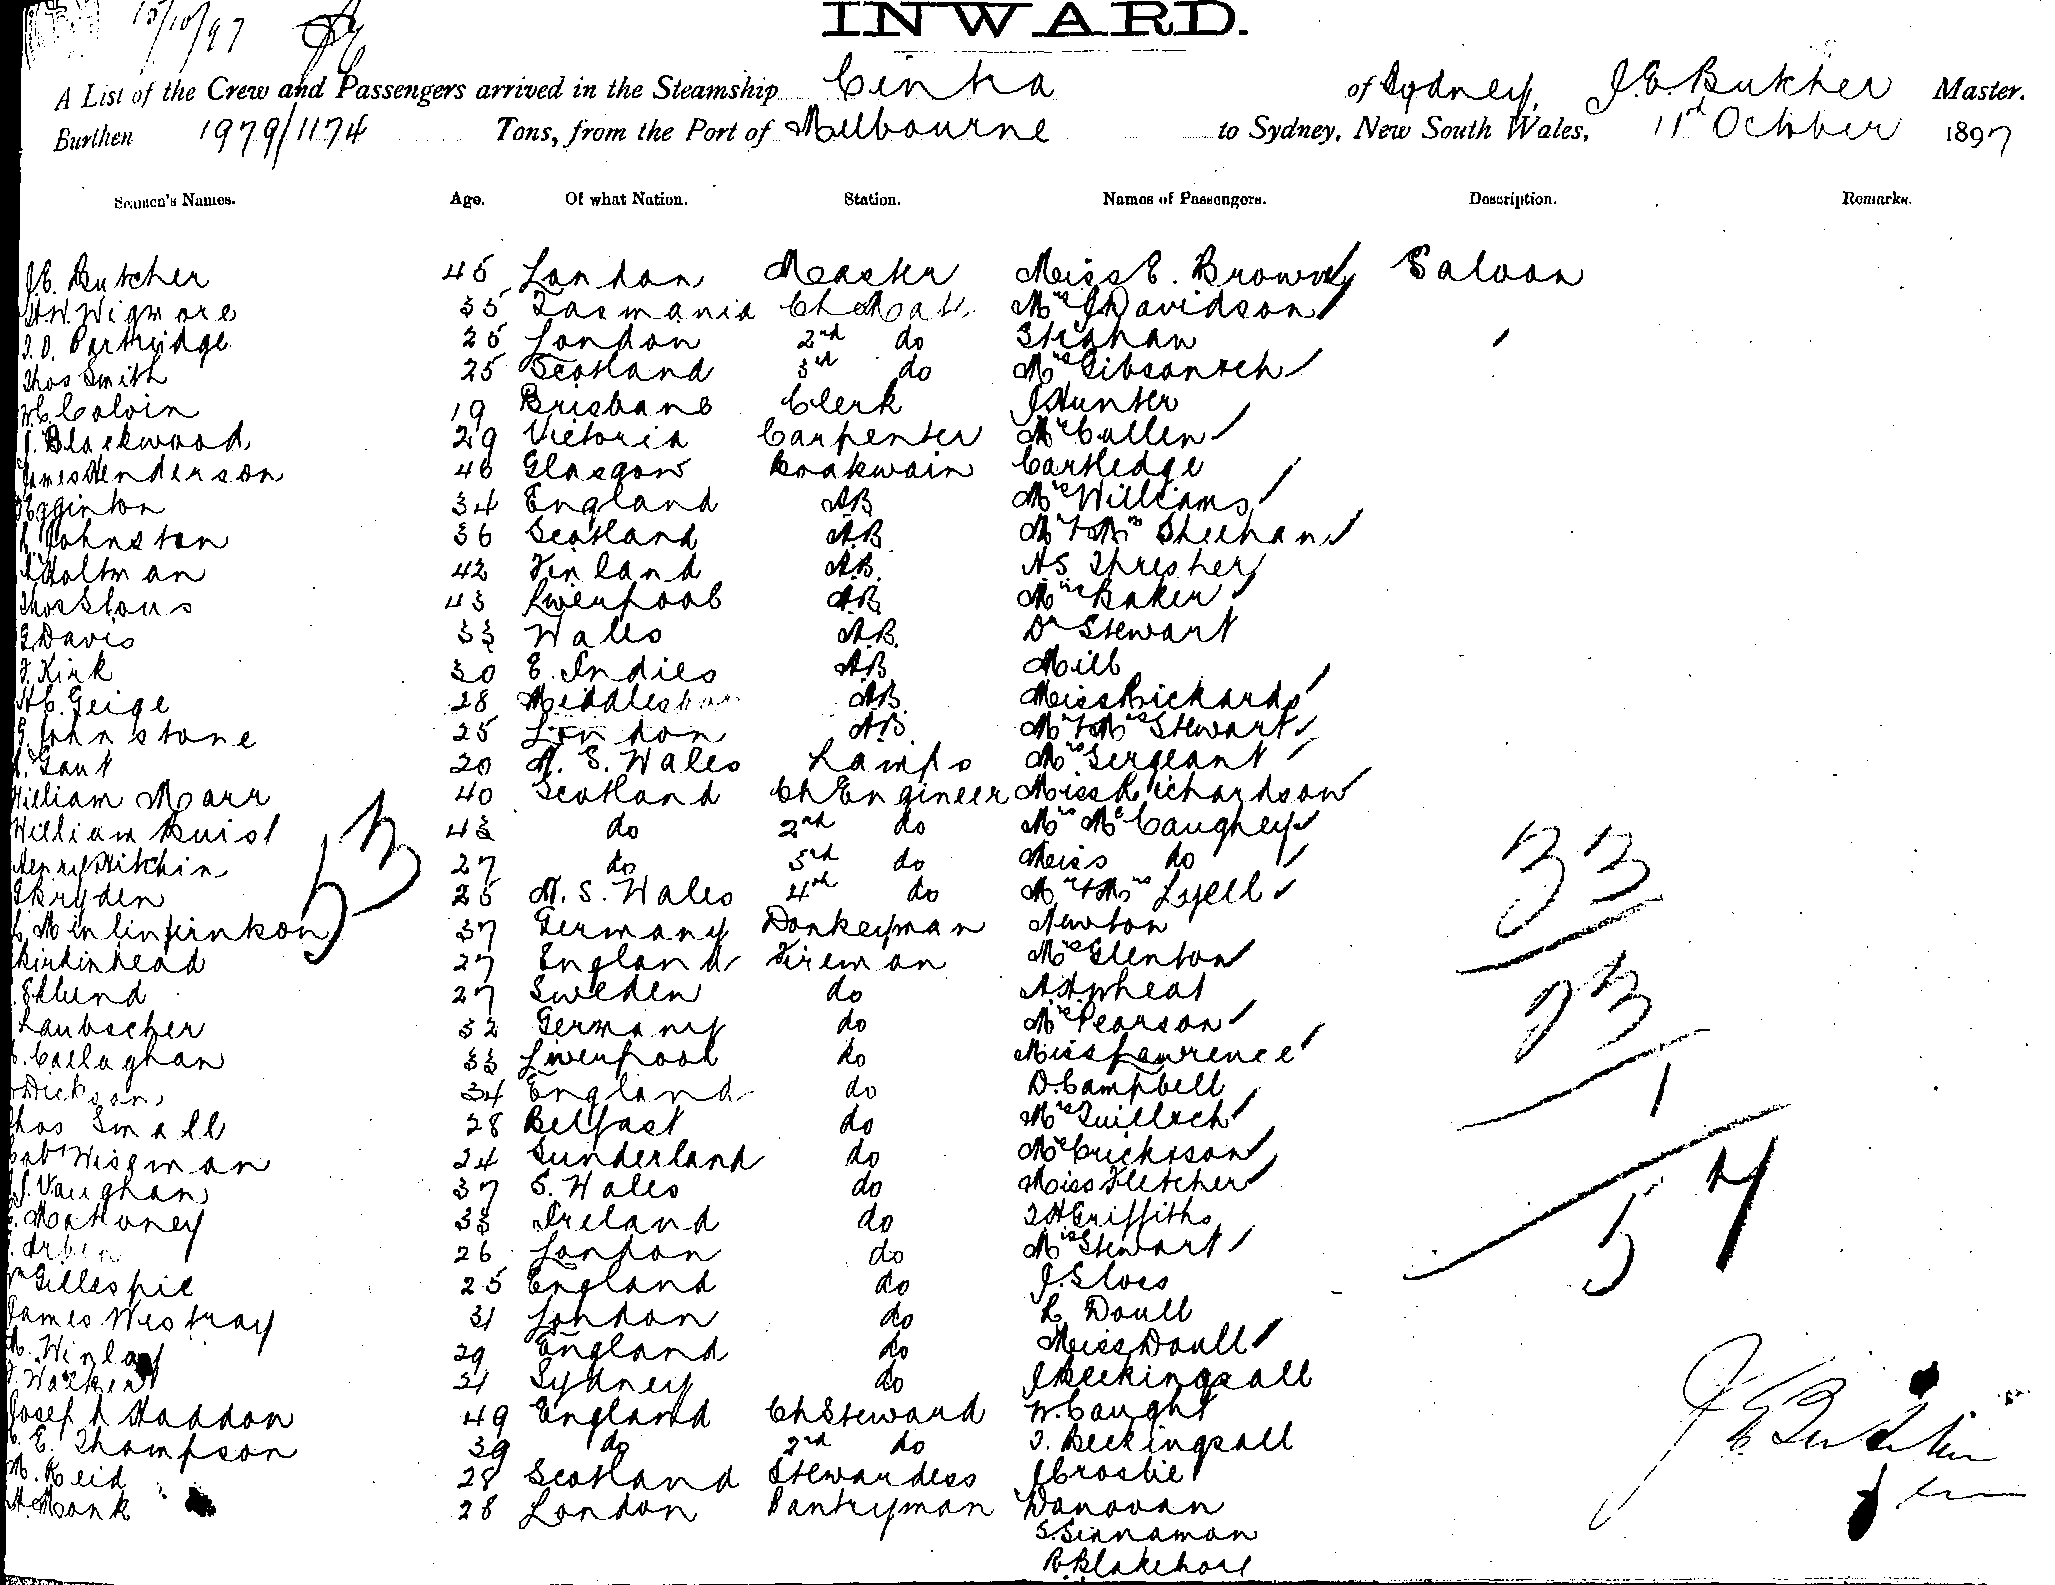 15/10/97
INWARD.
A List of the Crew and Passengers arrived in the Steamship Cintra of Sydney, J.E. Butcher Master.
Burthen 1979/1174 Tons, from the Port of Melbourne to Sydney, New South Wales, 11th October 1897
Seamen's Names. Age. Of what Nation. Station. Names of Passengers. Description. Remarks.
J.E. Butcher 45 London Master Miss E. Brown Saloon
Wigmore 35 Tasmania Ch Mate Mrs J Davidson
Partridge 25 London 2nd do Strahan
Thos Smith 25 Scotland 3rd do Mrs Gibson & ch
W.C. Colvin 19 Brisbane Clerk J Hunter
J. Blackwood 29 Victoria Carpenter Mrs Cullen
James Henderson 46 Glasgow Boatswain Cartledge
Egginton 34 England AB Mrs Williams
Johnston 36 Scotland AB Mr & Mrs Sheehan
Holtman 42 Finland AB. H.S. Thresher
Thos Slous 43 Liverpool AB Mrs Baker
Davis 33 Wales AB. Dr Stewart
Kirk 30 E. Indies AB Mill
H.C. Geige 28 Middlesbor AB. Miss Richards
Johnstone 25 London AB Mr & Mrs Stewart
Gaut 20 N. S. Wales Lamps Mrs Sergeant
William Marr 40 Scotland Ch Engineer Miss Richardson
William Buist 43 do 2nd do Mrs McCaughey
Henry Hitchin 27 do 3rd do Miss do
Bryden 25 N. S. Wales 4th do Mr & Mrs Lyell
37 Germany Donkeyman Newton
Birkinhead 27 England Fireman Mrs Glenton
Edlund 27 Sweden do A. Wheat
Laubscher 32 Germany do Mrs Pearson
Callaghan 33 Liverpool do Miss Lawrence
Dickson 34 England do D. Campbell
Thos Small 28 Belfast do Mrs Tulloch
Wiseman 24 Sunderland do Mrs Erickson
J. Vaughan 37 S. Wales do Miss Fletcher
Mahoney 33 Ireland do Griffiths
26 London do Mrs Stewart
Gillespie 25 England do J. Sloss
James Westray 31 London do L Doull
Winlay 29 England do Miss Doull
Walker 21 Sydney do J Beckingsall
Joseph Haddon 49 England Ch Steward W. Caught
E. Thompson 39 do 2nd do T. Beckingsall
M. Reid 28 Scotland Stewardess J Crosbie
Monk 28 London Pantryman Donovan
S. Sinnamon
53
33
23
1
57